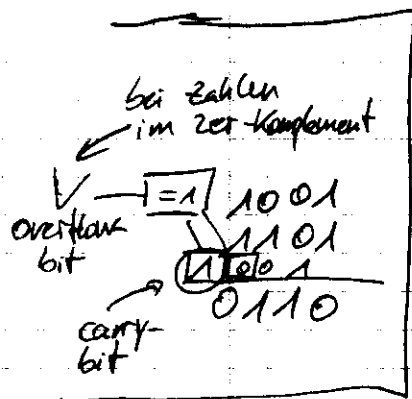 bei Zahlen
im 2er-Komplement
V =1 1001
overflow bit
1101
1 0 0 1
0110
carry-bit